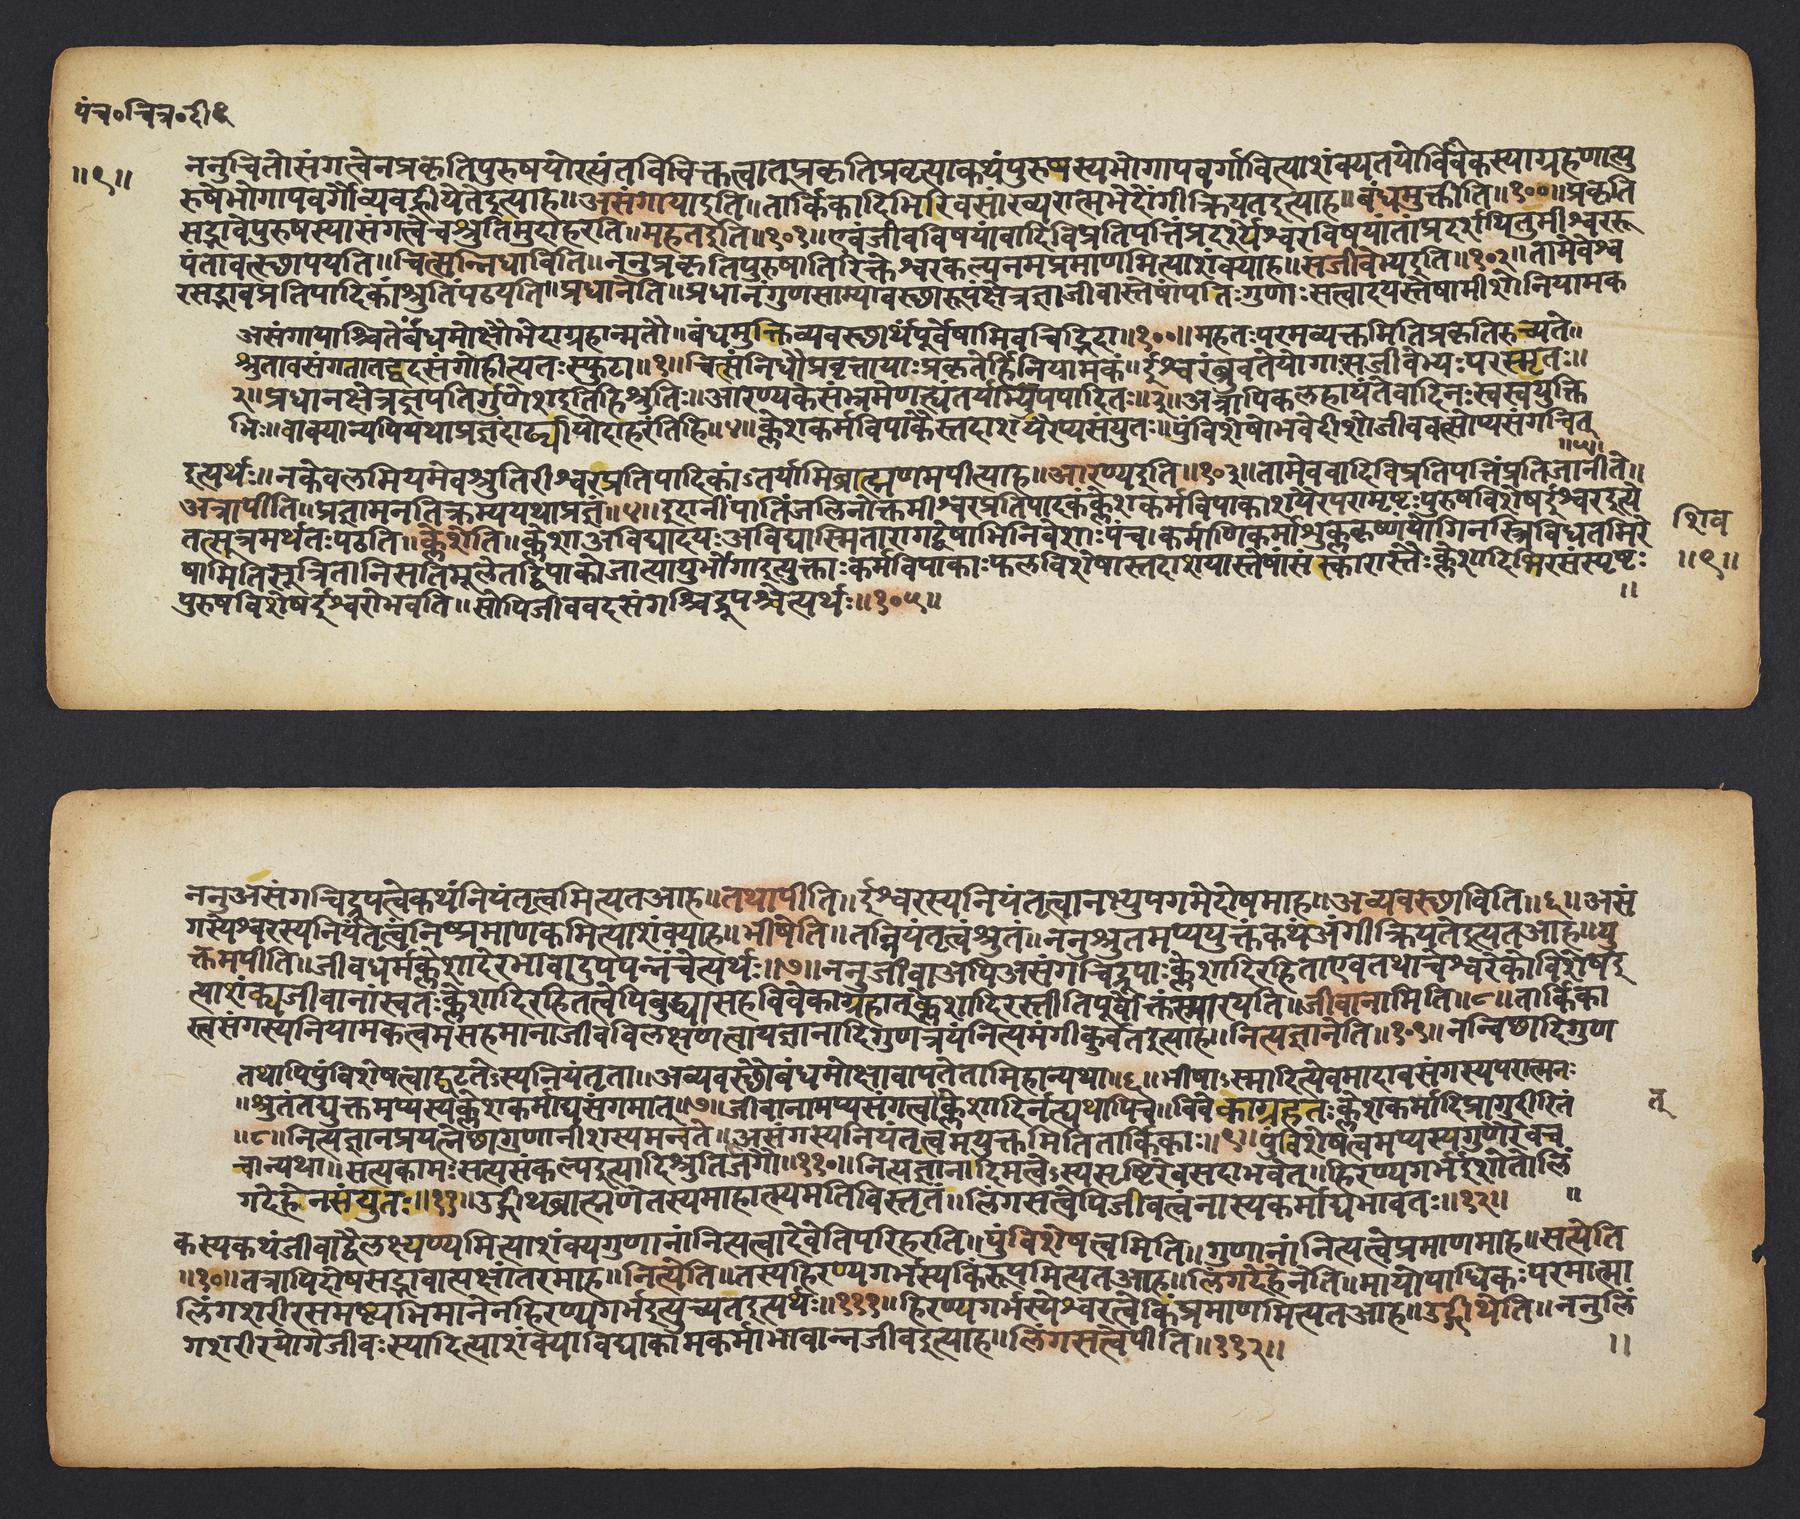 पंच॰चित्र॰दी९
॥९॥
ननुचितोसंगत्वेनप्रकृतिपुरुषयोरत्यंतविविक्तत्वात्प्रकृतिप्रवृत्याकथंपुरुषस्यभोगापवर्गावित्याशंक्यतयोर्विवेकस्याग्रहणात्पु
रुषेभोगापवर्गौव्यवह्रीयेतेइत्याह॥असंगायाइति॥तार्किकादिभिरिवसांख्यैरात्मभेदोंगीक्रियतइत्याह॥बंधमुक्तीति॥१००॥प्रकृति
सद्भावेपुरुषस्यासंगत्वेचश्रुतिमुदाहरति॥महतइति॥१०१॥एवंजीवविषयांवादिविप्रतिपत्तिंप्रदर्श्येश्वरविषयांतांप्रदर्शयितुमीश्वरस्वरू
पंतावत्स्छापयति॥चित्सन्निधाविति॥ननुप्रकृतिपुरुषातिरिक्तेश्वरकल्पनमप्रमाणमित्याशंक्याह॥सजीवेभ्यइति॥१०२॥तामेवेश्व
रसद्भावप्रतिपादिकांश्रुतिंपठयति॥प्रधानेति॥प्रधानंगुणसाम्यावस्छारूपंक्षेत्रज्ञाजीवास्तेषांपतिःगुणाःसत्वादयस्तेषामीशोनियामक
असंगायाश्चितेर्बंधमोक्षौभेदाग्रहान्मतौ॥बंधमुक्तिव्यवस्छार्थंपूर्वेषामिवचिद्भिदा॥१००॥महतःपरमव्यक्तमितिप्रकृतिरुच्यते॥
श्रुतावसंगतातद्वदसंगोहीत्यतःस्फुटा॥१॥चित्संनिधौप्रवृत्तायाःप्रकृतेर्हिनियामकं॥ईश्वरंब्रुवतेयोगाःसजीवेभ्यःपरःस्मृतः॥
२॥प्रधानक्षेत्रज्ञपतिर्गुणेशइतिहिश्रुतिः॥आरण्यकेसंभ्रमेणह्यंतर्याम्युपपादितः॥३॥अत्रापिकलहायंतेवादिनःस्वस्वयुक्ति
भिः॥वाक्यान्यपियथाप्रज्ञंदार्ढ्यायोदाहरंतिहि॥४॥क्लेशकर्मविपाकैस्तदाशयैरप्यसंयुतः॥पुंविशेषोभवेदीशोजीववत्सोप्यसंगचित्
॥५॥
इत्यर्थः॥नकेवलमियमेवश्रुतिरीश्वरप्रतिपादिकांऽतर्यामिब्राह्मणमपीत्याह॥आरण्यइति॥१०३॥तामेववादिविप्रतिपत्तिंप्रतिजानीते॥
अत्रापीति॥प्रज्ञामनतिक्रम्ययथाप्रज्ञं॥४॥इदानींपातंजलिनोक्तमीश्वरप्रतिपादकंक्लेशकर्मविपाकाशयैरपरामृष्टःपुरुषविशेषईश्वरइत्ये
तत्सूत्रमर्थतःपठति॥क्लेशेति॥क्लेशाअविद्यादयःअविद्यास्मितारागद्वेषाभिनिवेशाःपंच।कर्माणिकर्माशुक्लकृष्णंयोगिनस्त्रिविधतमिरे
षामितिसूत्रितानिसतिमूलेतद्विपाकोजात्यायुर्भोगाइत्युक्ताःकर्मविपाकाःफलविशेषास्तदाशयास्तेषांसंस्कारास्तैःक्लेशादिभिरसंस्पृष्टः
पुरुषविशेषईश्वरोभवति॥सोपिजीववदसंगश्चिद्रूपश्चेत्यर्थः॥१०५॥
॥
शिव
॥९॥
ननुअसंगचिद्रूपत्वेकथंनियंतृत्वमित्यतआह॥तथापीति॥ईश्वरस्यनियंतृत्वानभ्युपगमेदोषमाह॥अव्यवस्छाविति॥६॥असं
गस्येश्वरस्यनियंतृत्वंनिष्प्रमाणकमित्याशंक्याह॥भीषेति॥तन्नियंतृत्वंश्रुतं॥ननुश्रुतमप्ययुक्तंकथंअंगीक्रियतेइत्यतआह॥यु
क्तमपीति॥जीवधर्मक्लेशादेरभावादुपपन्नंचेत्यर्थः॥७॥ननुजीवाअपिअसंगचिद्रूपाःक्लेशादिरहिताएवतथाचेश्वरेकोविशेषइ
त्याशंक्यजीवानांस्वतःक्लेशादिरहितत्वेपिबुद्ध्यासहविवेकाग्रहात्क्लेशादिरस्तीतिपूर्वोक्तंस्मारयति॥जीवानामिति॥८॥तार्किका
स्त्वसंगस्यनियामकत्वमसहमानाजीवविलक्षणत्वायज्ञानादिगुणत्रयंनित्यमंगीकुर्वतइत्याह॥नित्यज्ञानेति॥१०९॥नन्विछादिगुण
तथापिपुंविशेषत्वाद्घटतेऽस्यनियंतृता॥अव्यवस्छौबंधमोक्षावापतेतामिहान्यथा॥६॥भीषाऽस्मादित्येवमादावसंगस्यपरात्मनः
॥श्रुतंतद्युक्तमप्यस्यक्लेशकर्माद्यसंगमात्॥७॥जीवानामप्यसंगत्वात्क्लेशादिर्नह्यथापिच॥विवेकाग्रहतःक्लेशकर्मादिप्रागुदीरितं
त्
॥८॥नित्यज्ञानप्रयत्नेछागुणानीशस्यमन्वते॥असंगस्यनियंतृत्वमयुक्तमितितार्किकाः॥९॥पुंविशेषत्वमप्यस्यगुणैरेवच
चान्यथा॥सत्यकामःसत्यसंकल्पइत्यादिश्रुतिर्जगौ॥११०॥नित्यज्ञानादिमत्वेऽस्यसृष्टिरेवसदाभवेत्॥हिरण्यगर्भईशोतोलिं
गदेहेनसंयुतः॥११॥उद्गीथब्राह्मणेतस्यमाहात्म्यमतिविस्तृतं॥लिंगसत्वेपिजीवत्वंनास्यकर्माद्यभावतः॥१२॥
॥
कस्यकथंजीवाद्वैलक्ष्यण्यमित्याशंक्यगुणानांनित्यत्वादेवेतिपरिहरति॥पुंविशेषत्वमिति॥गुणानांनित्यत्वेप्रमाणमाह॥सत्येति
॥१०॥तत्रापिदोषसद्भावात्पक्षांतरमाह॥नित्येति॥तस्यहिरण्यगर्भस्यकिंरूपमित्यतआह॥लिंगदेहेनेति॥मायोपाधिकःपरमात्मा
लिंगशरीरसमष्ट्यभिमानेनहिरण्यगर्भइत्युच्यतइत्यर्थः॥१११॥हिरण्यगर्भस्येश्वरत्वेकिंप्रमाणमित्यतआह॥उद्गीथेति॥ननुलिं
गशरीरयोगेजीवःस्यादित्याशंक्याविद्याकामकर्माभावान्नजीवइत्याह॥लिंगसत्वेपीति॥११२॥
॥